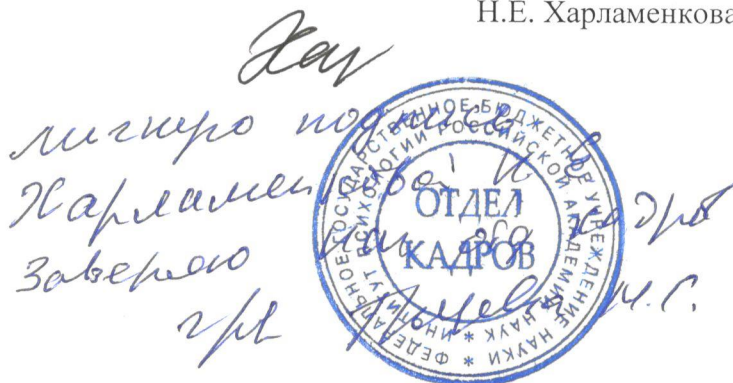 Н.Е. Харламенкова
Хар
личную подпись
Харламенкова Н.
Заверяю нач отд кадров
М.С.
ФЕДЕРАЛЬНОЕ ГОСУДАРСТВЕННОЕ БЮДЖЕТНОЕ УЧРЕЖДЕНИЕ НАУКИ *
ИНСТИТУТ ПСИХОЛОГИИ РОССИЙСКОЙ АКАДЕМИИ НАУК *
ОТДЕЛ
КАДРОВ